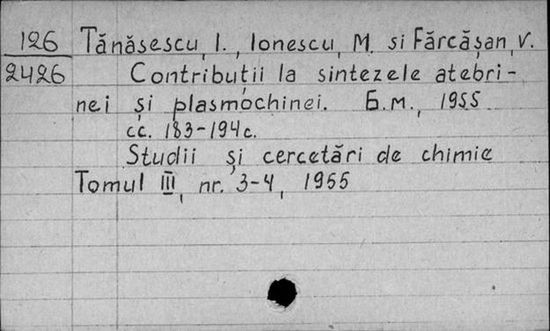 126 Tănăsescu, I., Ionescu, M. si Fărcășan, V.
2426 Contribuții la sintezele atebri-
nei și plasmochinei. Б.м., 1955
cc. 183-194 c.
Studii și cercetări de chimie
Tomul III, nr. 3-4, 1955